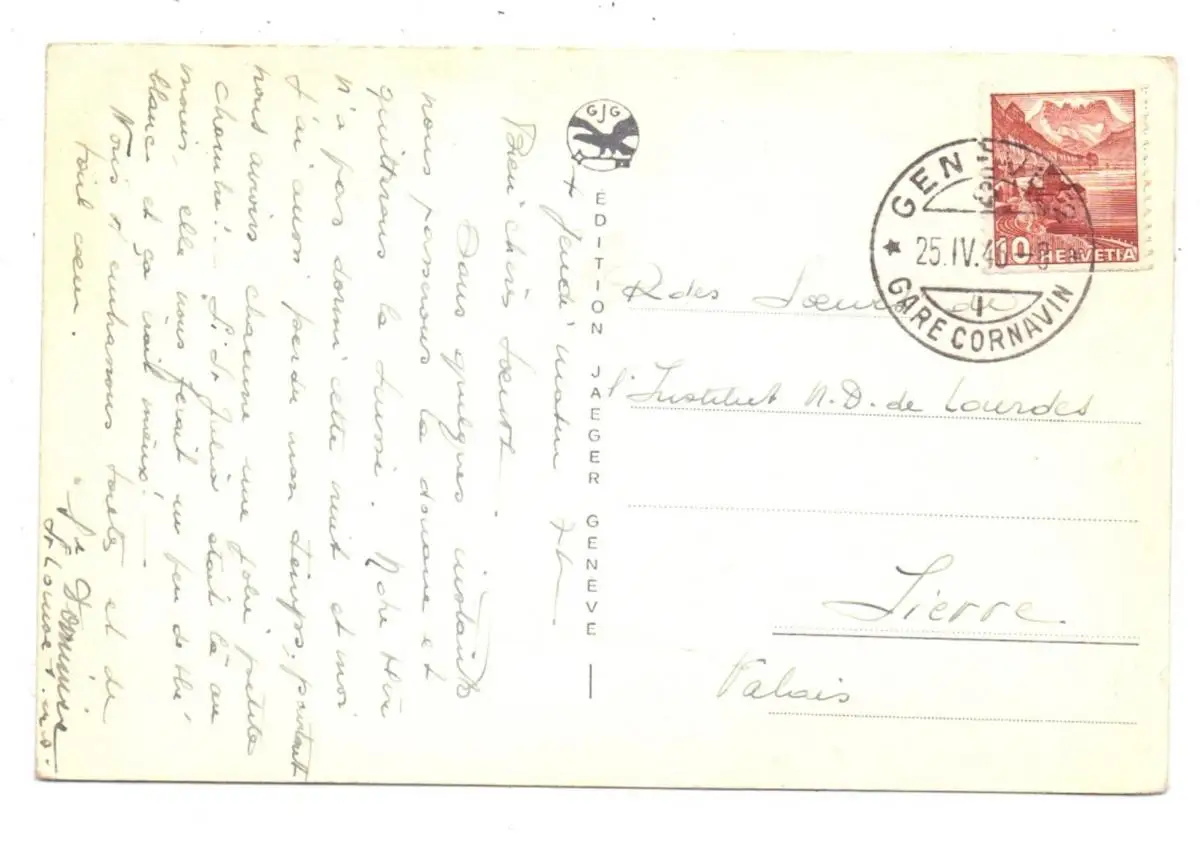 + Jeudi matin 7h
Bien chères Soeurs.
Dans quelques instants
nous passerons la douane et
quitterons la Suisse. Notre Mère
n'a pas dormi cette nuit et moi
j'ai aussi perdu mon temps, pourtant
nous avions chacune une jolie petite
chambre! Si Sr Julia était là au
moins, elle nous ferait un peu de thé
blanc et ça irait mieux!
Nous v. embrassons toutes et de
tout coeur.
Sr Dominique
GJG
EDITION JAEGER GENEVE
GENÈVE
25.IV.4
GARE CORNAVIN
1
10 HELVETIA
Rdes Soeurs de
l'Institut N.D. de Lourdes
Sierre
Valais